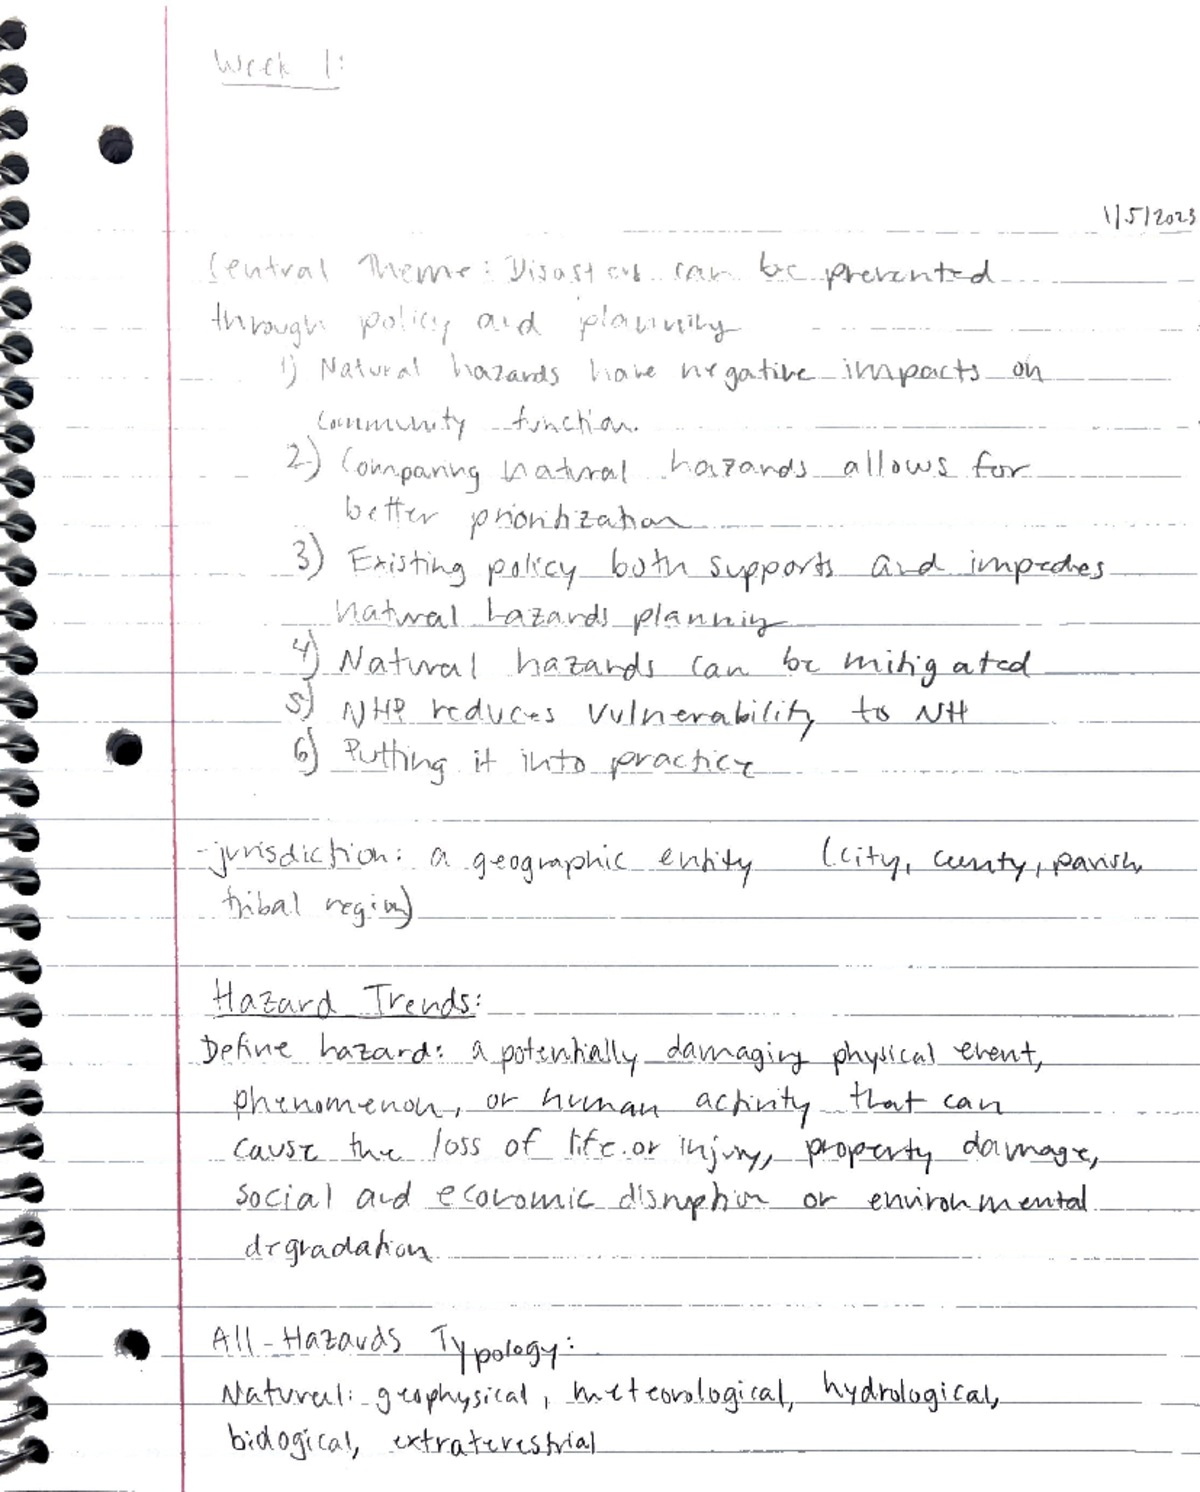 Week 1:
1/5/2023
Central Theme: Disasters can be prevented
through policy and planning
1) Natural hazards have negative impacts on
community function.
2) Comparing natural hazards allows for
better prioritization
3) Existing policy both supports and impedes
natural hazards planning
4) Natural hazards can be mitigated
5) NHP reduces vulnerability to NH
6) Putting it into practice
-jurisdiction: a geographic entity (city, county, parish,
tribal region)
Hazard Trends:
Define hazard: a potentially damaging physical event,
phenomenon, or human activity that can
cause the loss of life or injury, property damage,
social and economic disruption or environmental
degradation
All-Hazards Typology:
Natural: geophysical, meteorological, hydrological,
biological, extraterestrial